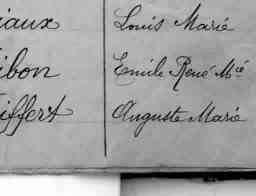 iaux Louis Marie
ibon Emile René Mcé
iffert Auguste Marie